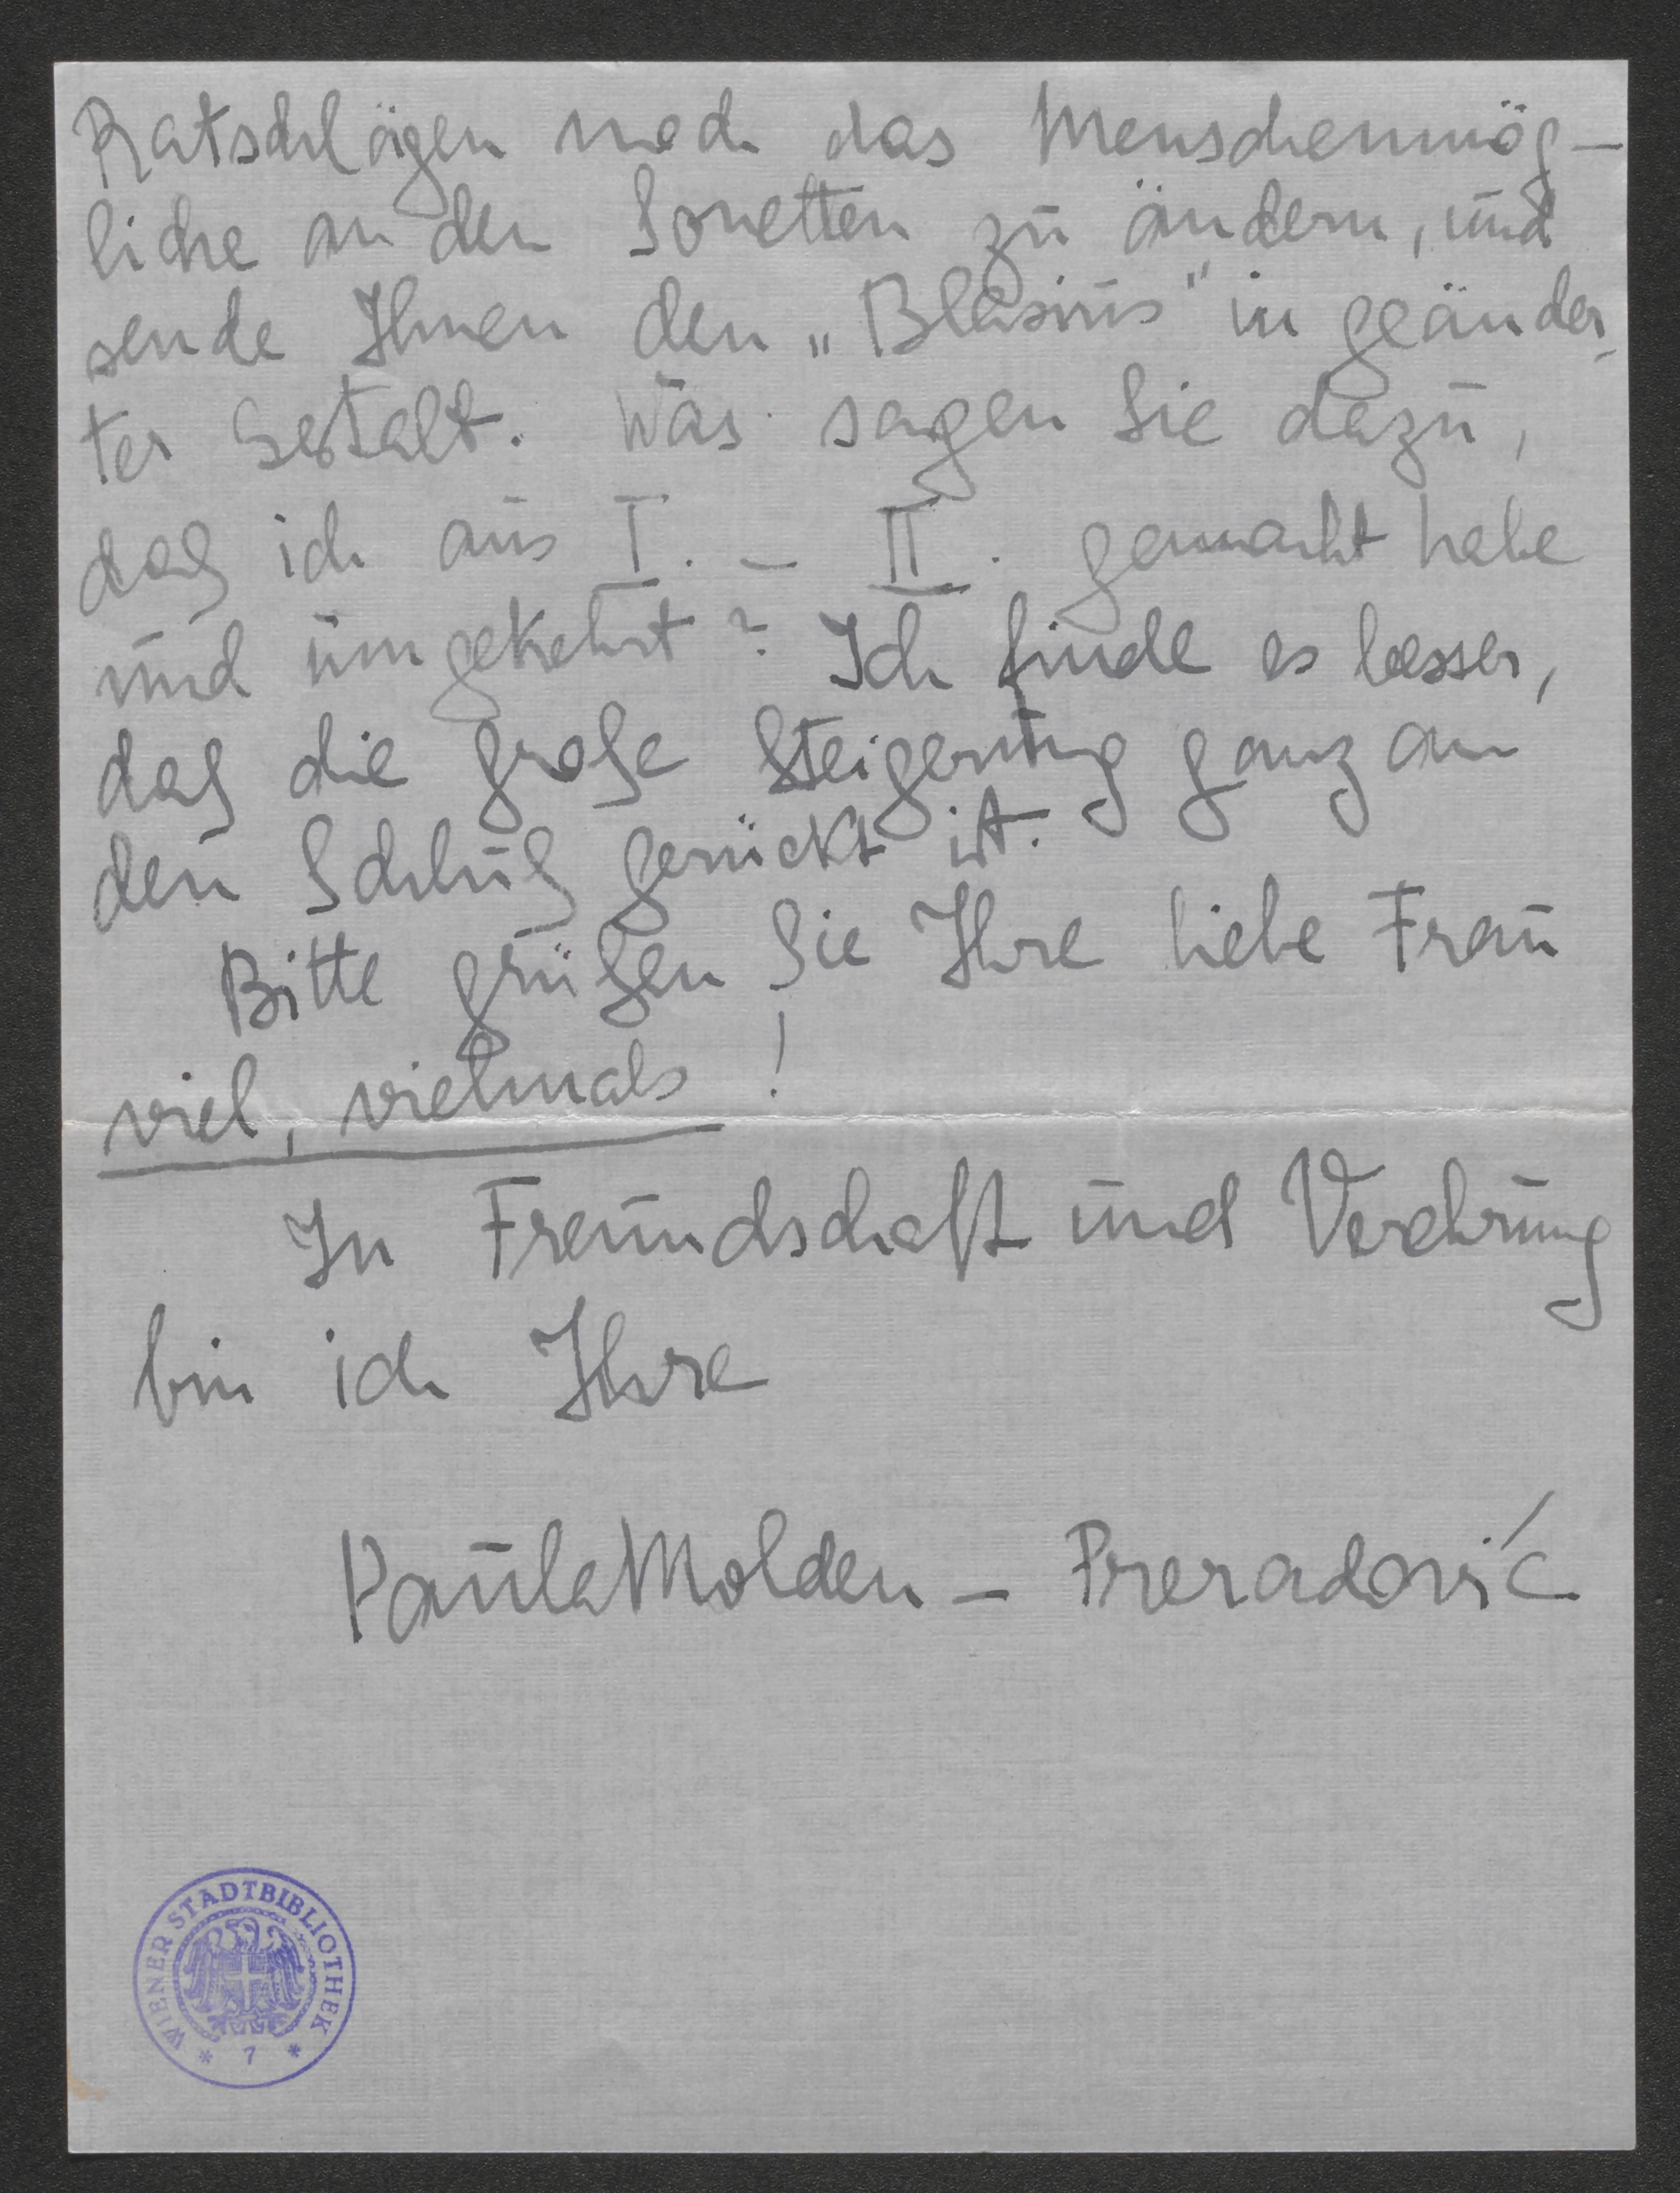 Ratschlägen noch das Menschenmög-
liche an den Sonetten zu ändern, und
sende Ihnen den „Blasius" in geänder-
ter Gestalt. Was sagen Sie dazu,
daß ich aus I. – II. gemacht habe
und umgekehrt? Ich finde es besser,
daß die große Steigerung ganz an
den Schluß gerückt ist.
Bitte grüßen Sie Ihre liebe Frau
viel, vielmals!
In Freundschaft und Verehrung
bin ich Ihre
Paula Molden – Preradović
WIENER STADTBIBLIOTHEK
* 7 *